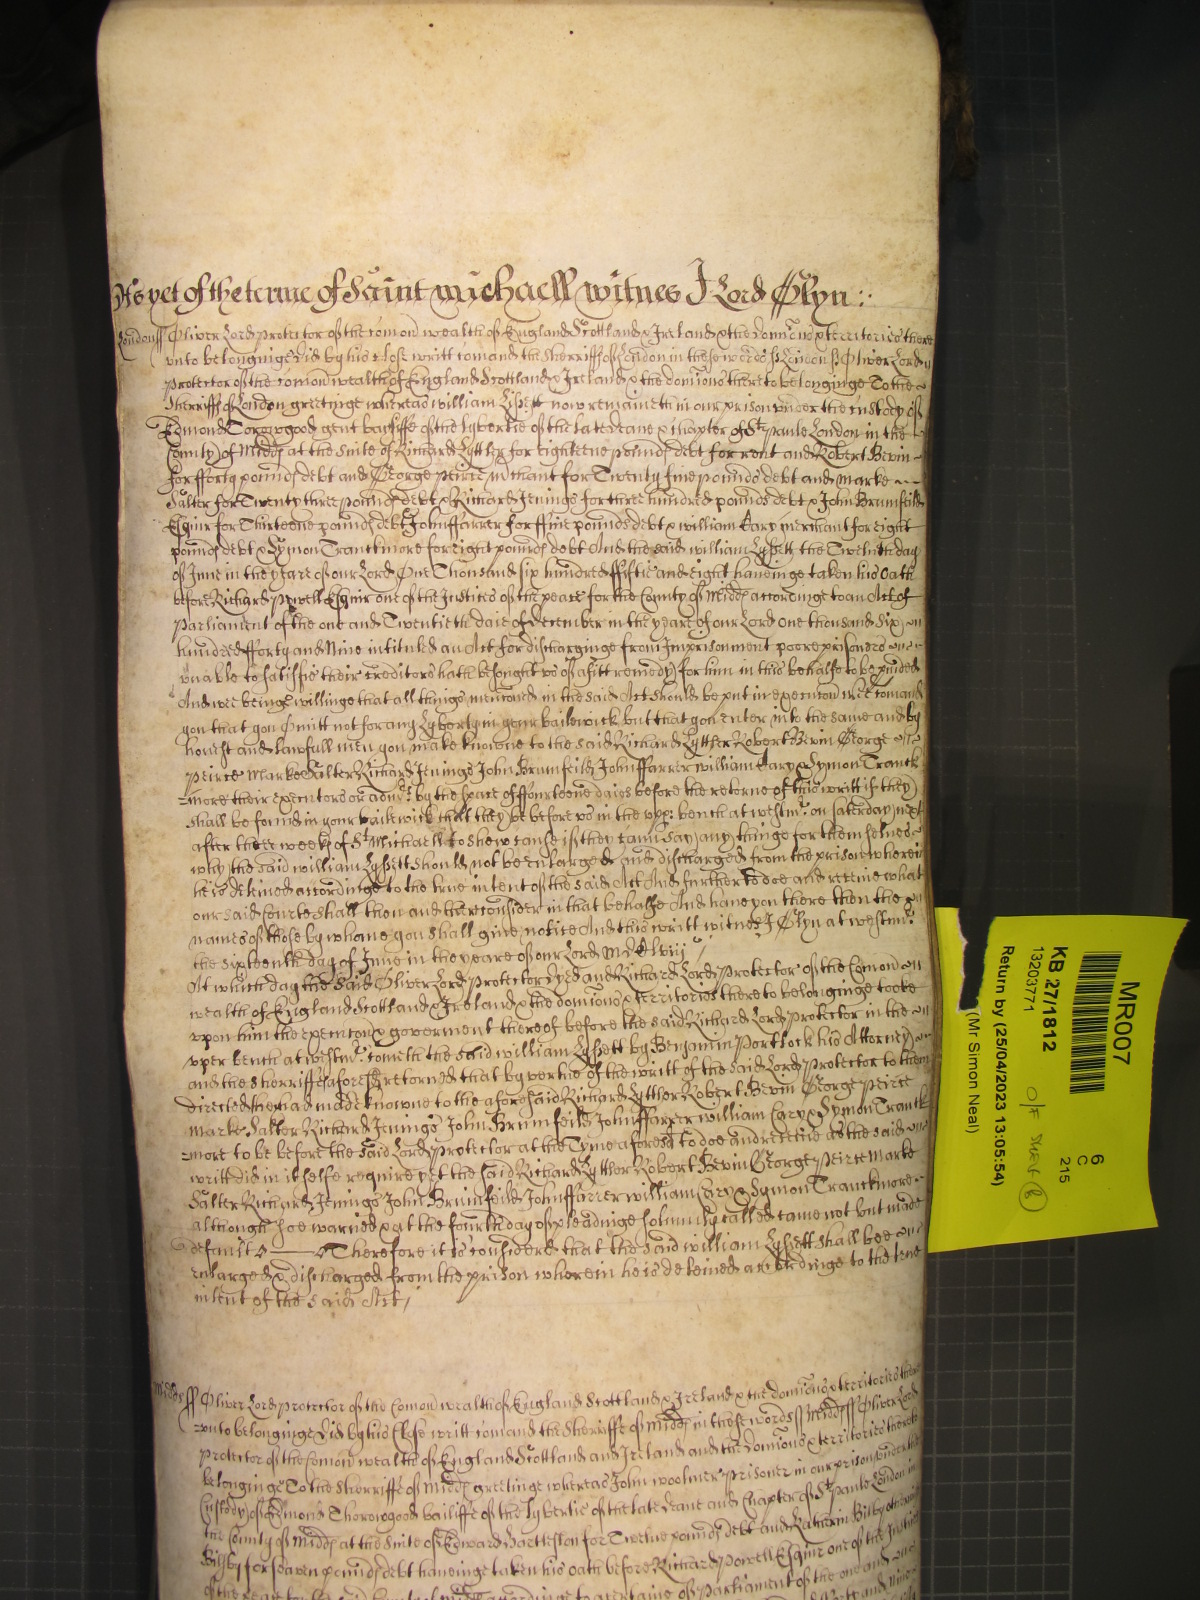 As yet of the terme of Saint Michaell witnes J Lord Glyn :
London ss Oliver Lord Protector of the comon wealth of England Scottland & Ireland & the Dominions & territories there
unto belonginge did by his close writt comand the Sherriffs of London in these words ss London ss Oliver Lord
Protector of the comon wealth of England Scottland & Ireland & the dominions thereto belonginge To the
Sherriffs of London greetinge whereas William Lyssett now remaineth in our prison under the custody of
Edmond Thorowgood gent bayliffe of the lybertie of the late deane & chapter of St Paule London in the
County of Midds at the suite of Richard Lyther for eighteene pounds debt for rent and Robert Bevin
for fforty pounds debt and George Peirce merchant for Twenty five pounds debt and Marke
Salter for Twenty three pounds debt & Richard Jenings for three hundred pounds debt & John Brumfeild
Esquir for Thirteene pounds debt John ffarrer for ffive pounds debt & William Cary merchant for eight
pounds debt & Symon Tranckmore for eight pounds debt And the said William Lyssett the Twelueth day
of June in the yeare of our Lord One Thousand six hundred ffiftie and eight haveinge taken his Oath
before Richard Powell Esquir one of the Justices of the peace for the County of Midds accordinge to an Act of
Parliament of the one and Twentieth daie of December in the yeare of our Lord one thousand six
hundred fforty and Nine intituled an Act for dischardginge from Imprisonment poore prisoners
unable to satisfie their creditors hath besought us of a fitt remedy for him in this behalfe to be provided
And wee being willinge that all things mencioned in the said Act should be put in execucion wee comand
you that you Omitt not for any Lyberty in your bailewick but that you enter into the same and by
honest and lawfull men you make knowne to the said Richard Lyther Robert Bevin George
Peirce Marke Salter Richard Jenings John Brumfeild John ffarrer William Cary & Symon Tranck
=more their executors or admrs by the space of ffourteene daies before the retorne of this writt if they
shall be found in your bailewick that they be before us in the upp: bench at westmr. on saterday next
after three weeks of St Michaell to shew cause if they cann say any thinge for themselves
why the said William Lyssett should not be enlarged and discharged from the prison wherein
he is deteined accordinge to the true intent of the said Act And further to doe and receive what
our said Courte shall then and there consider in that behalfe And have you there then the
names of those by whome you shall give notice And this writt witnes J Glyn at westmr.
the sixteenth day of June in the yeare of our Lord MDClviij
At which day the said Oliver Lord Protector dyed and Richard Lord Protector of the Comon
wealth of England Scottland & Ireland & the dominions & territories thereto belonginge tooke
upon him the execucion & goverment thereof before the said Richard Lord Protector in the
upper bench at westmr. cometh the said William Lyssett by Benjamin Portlock his Attorney
and the Sherriffs aforesd returned that by vertue of the writt of the said Lord Protector to them
directed they had made knowne to the aforesaid Richard Lyther Robert Bevin George Peirce
Marke Salter Richard Jennings John Brumfeild John ffarrer William Cary & Symon Tranck
=more to be before the said Lord Protector at the Tyme aforesd to doe and receive as the said
writt did in it selfe require yet the said Richard Lyther Robert Bevin George Peirce Marke
Salter Richard Jenings John Brumfeild John ffarrer William Cary & Symon Tranckmore
although soe warned & at the fourth day of pleadinge solemnly called came not but made
default Therefore it is considered that the said William Lyssett shall bee
enlarged & discharged from the prison wherein he is deteined accordinge to the true
intent of the said Act
Midds ss Oliver Lord Protector of the Comon wealth of England Scottland & Ireland & the dominions & territories there
unto belonginge did by his Close writt comand the Sherriffe of Midds in these words ss Midds ss Oliver Lord
Protector of the Comon wealth of England Scottland and Ireland and the Dominions & territories thereto
belonginge To the Sherriffe of Midds greetinge whereas John Woolmer prisoner in our prison under the
Custody of Edmond Thorowgood bailiffe of the lybertie of the late deane and Chapter of St Paule London in
the County of Midds at the suite of Edward Hartleston for Twelve pounds debt and Katherin Bilby otherwise
Bilsby for seaven pounds debt haveinge taken his oath before Richard Powell Esquir one of the Justices
MR007
KB 27/1812
13203771
Return by (25/04/2023 13:05:54)
(Mr Simon Neal)
6
C
215